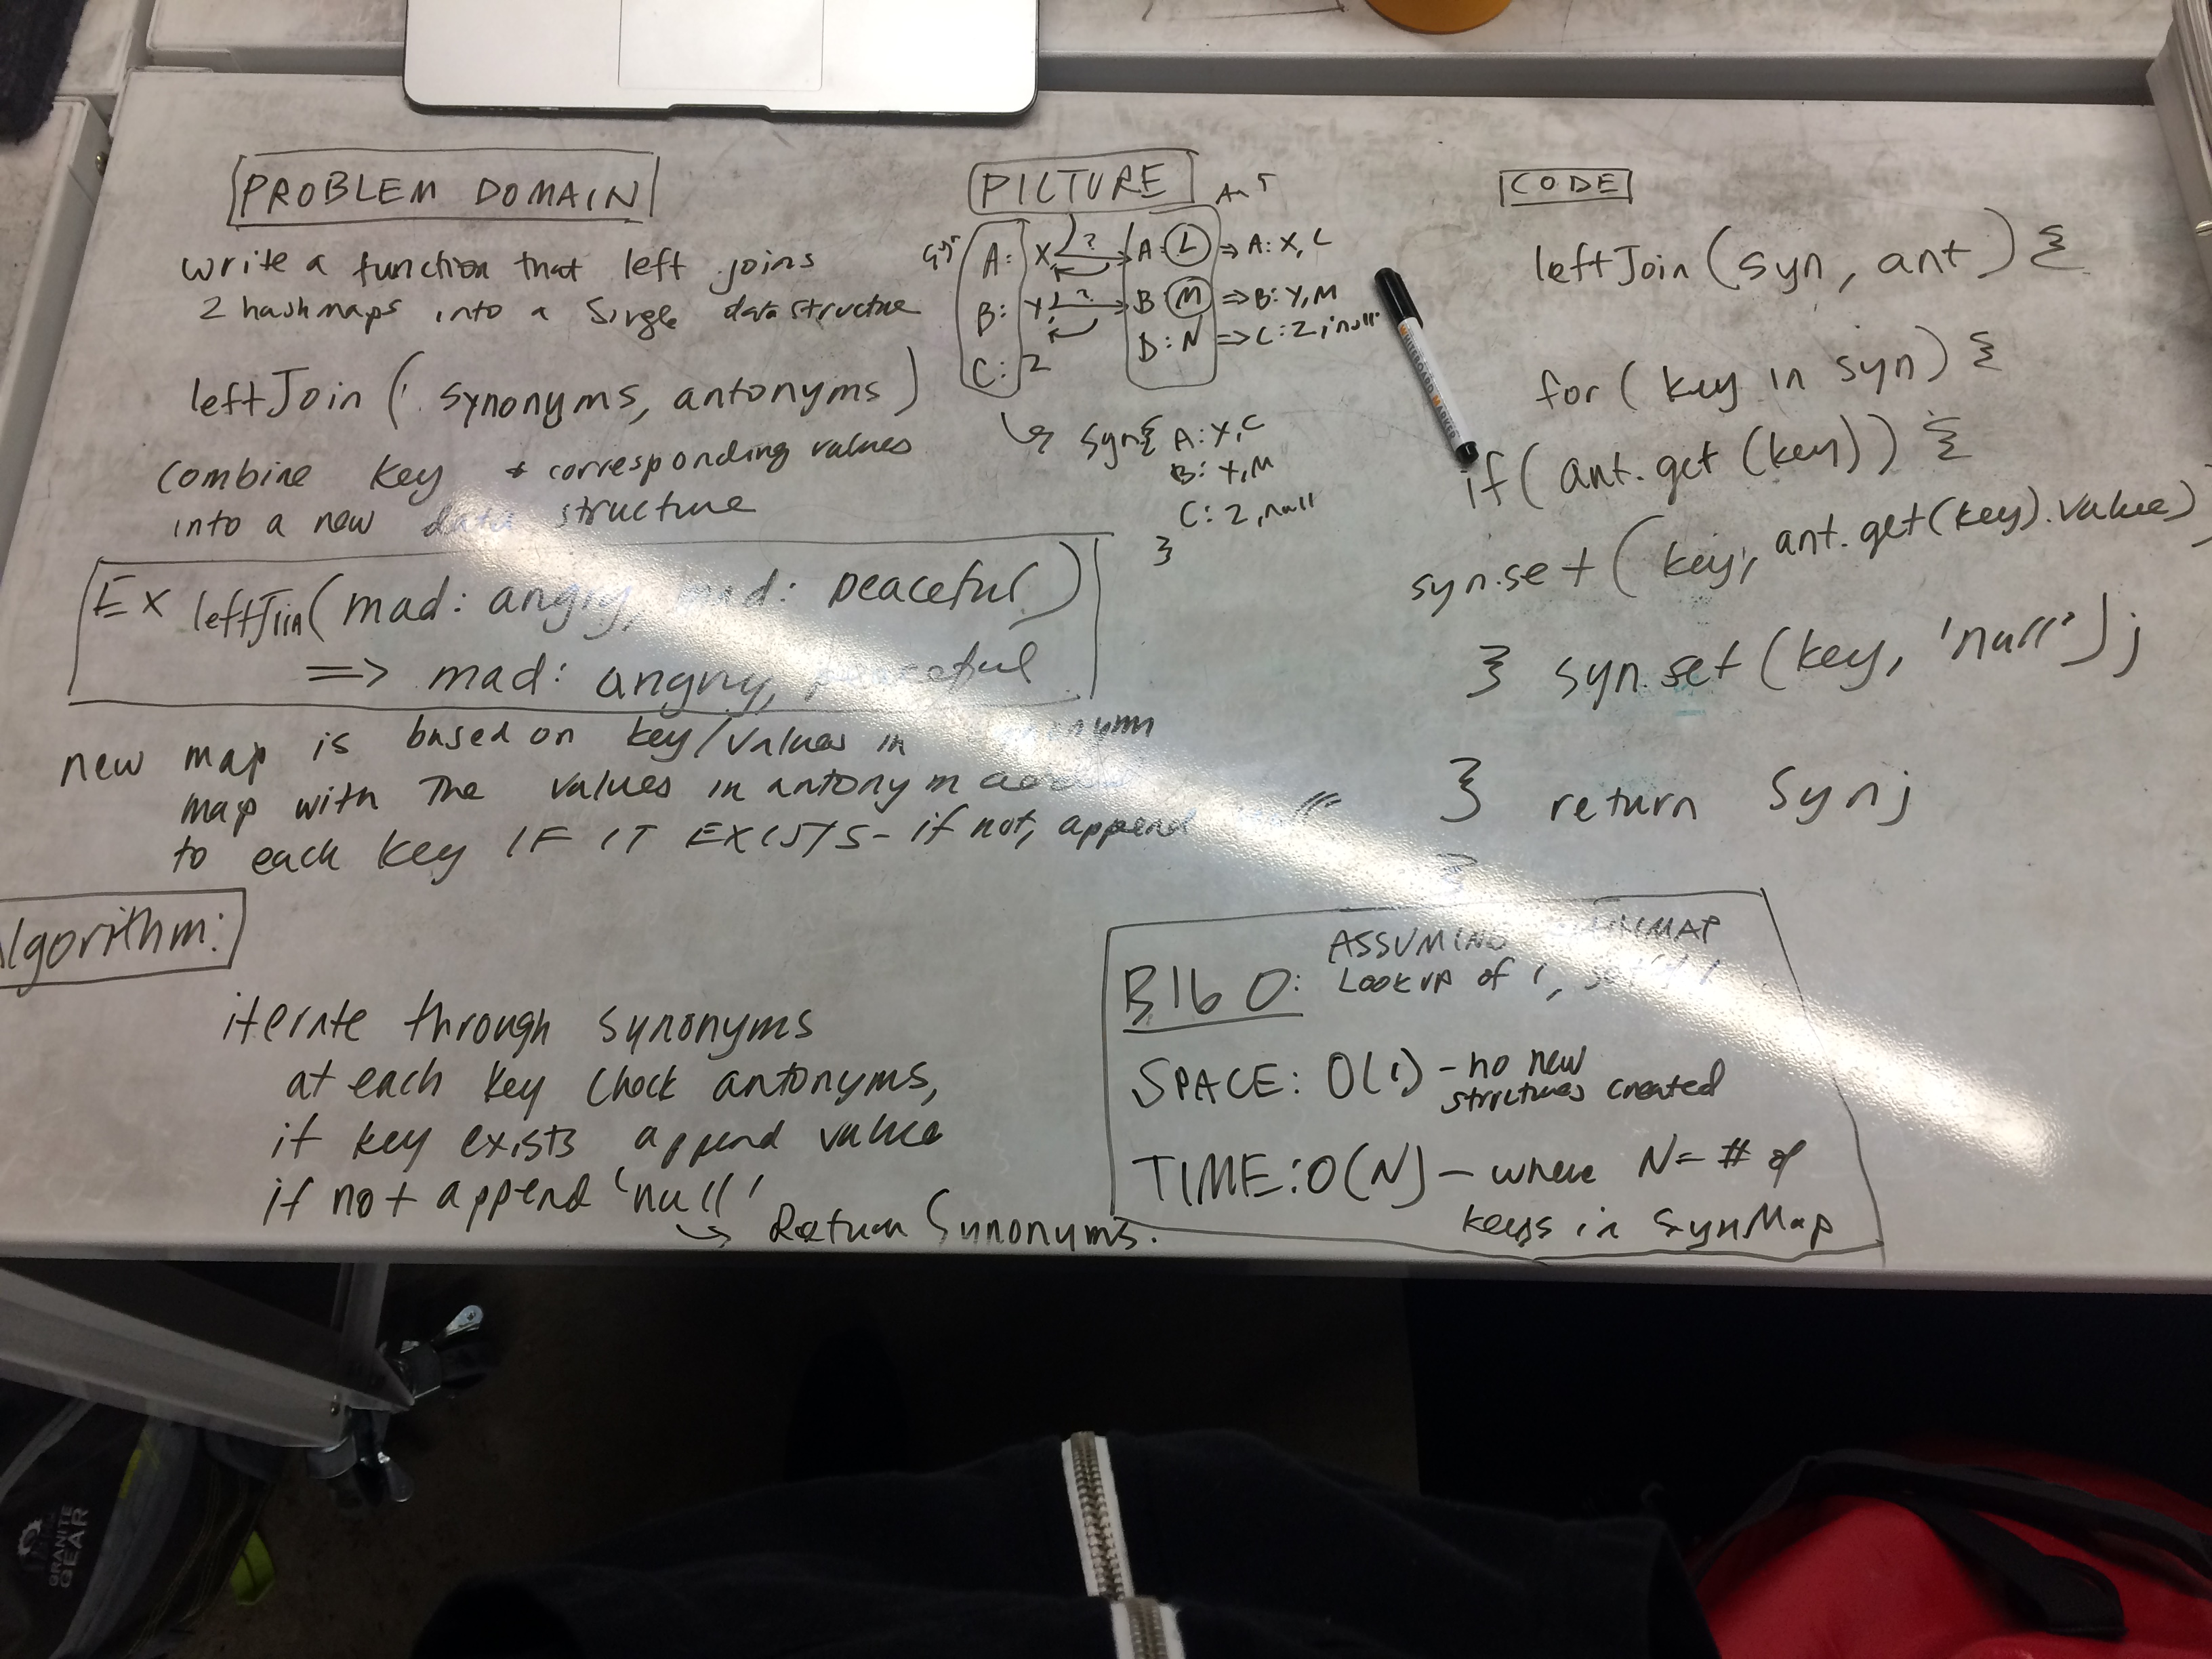 PROBLEM DOMAIN
Write a function that left joins
2 hashmaps into a single data structure
leftJoin (synonyms, antonyms)
Combine key + corresponding values
into a new data structure
Ex leftJoin(mad: angry, mad: peaceful)
=> mad: angry, peaceful
new map is based on key/values in
map with the values in antonym
to each key IF IT EXISTS - if not, append
Algorithm:
iterate through synonyms
at each key check antonyms,
if key exists append value
if not append 'null'
Return Synonyms.
PICTURE
syn
Ant
A: X
A: L => A: X, L
B: Y
B: M => B: Y, M
C: Z
D: N => C: Z, null
syn { A: X, L
B: Y, M
C: Z, null
}
CODE
leftJoin(syn, ant) {
for (key in syn) {
if (ant.get(key)) {
syn.set(key, ant.get(key).value)
} syn.set(key, 'null');
} return syn;
}
BIG O:
ASSUMING
LOOKUP of 1,
SPACE: O(1) - no new
structures created
TIME: O(N) - where N = # of
keys in SynMap
GRANITE
GEAR
WHITEBOARD MARKER